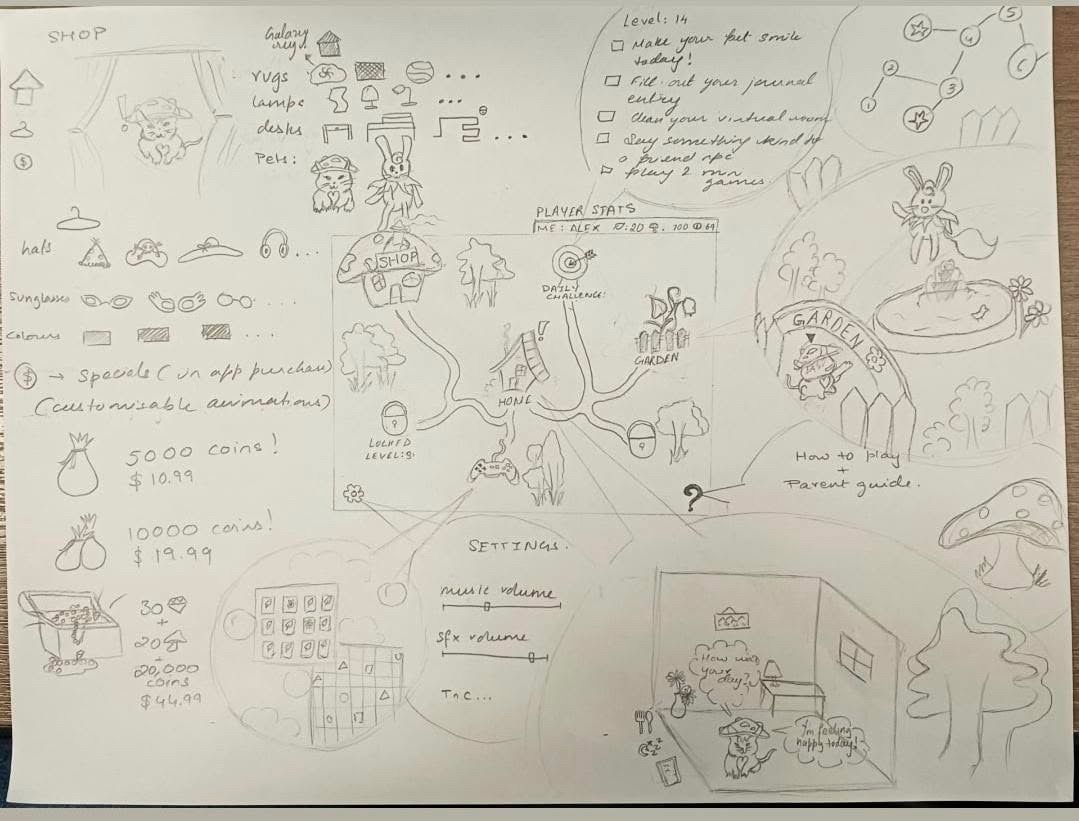 SHOP
Galaxy
rugs
lamps
desks
Pets:
hats
Sunglasses
Colours
$ → Specials (in app purchase)
(customisable animations)
5000 coins!
$ 10.99
10000 coins!
$ 19.99
30
+
20
+
20,000
coins
$44.99
Level: 14
Make your pet smile
today!
Fill out your journal
entry
Clean your virtual room
Say something kind to
a friend npc
play 2 mini
games.
1
2
3
4
5
6
PLAYER STATS
ME: ALEX :20 : 100 :69
SHOP
DAILY
CHALLENGE:
GARDEN
HOME
!
LOCKED
LEVEL:9.
?
GARDEN
How to play
+
Parent guide.
SETTINGS.
music volume
sfx volume
TnC...
How was
your
day?
I'm feeling
happy today!
zzz